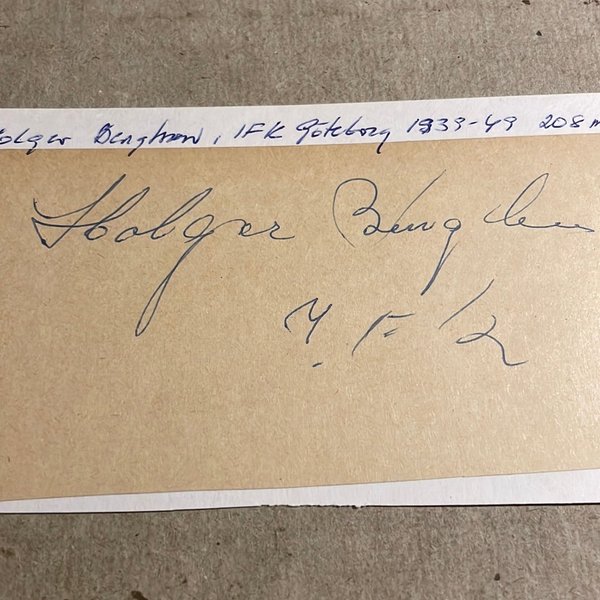 Holger Bengtsson, IFK Göteborg 1939-49 208 m
Holger Bengtsson
I.F.K